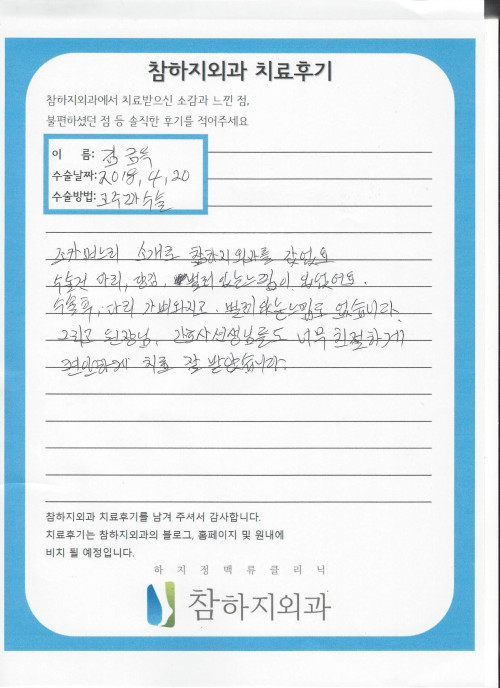 참하지외과 치료후기
참하지외과에서 치료받으신 소감과 느낀 점,
불편하셨던 점 등 솔직한 후기를 적어주세요
이 름: 김
수술날짜: 2018, 4, 20
수술방법: 고주파수술
조카며느리 소개로 참하지외과를 갔었요
수술전 다리, 벌레 있는느낌이 있었어요.
수술후, 다리 가벼워지고, 벌레 있는느낌도 없습니다.
그리고 원장님, 간호사선생님들도 너무 친절하게
편안하게 치료 잘 받았습니다.
참하지외과 치료후기를 남겨 주셔서 감사합니다.
치료후기는 참하지외과의 블로그, 홈페이지 및 원내에
비치 될 예정입니다.
하지정맥류클리닉
참하지외과